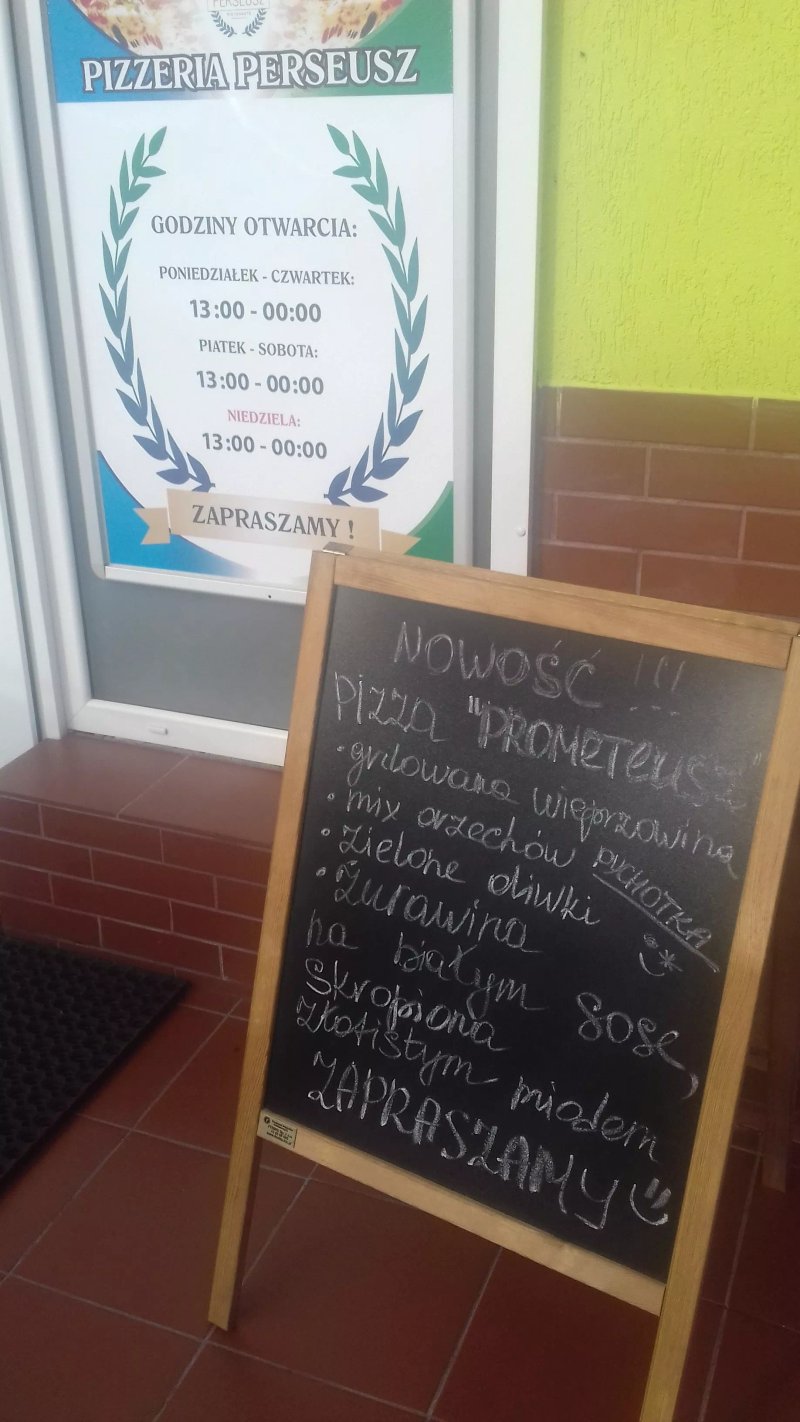 PERSEUSZ
PIZZERIA PERSEUSZ
GODZINY OTWARCIA:
PONIEDZIAŁEK - CZWARTEK:
13:00 - 00:00
PIATEK - SOBOTA:
13:00 - 00:00
NIEDZIELA:
13:00 - 00:00
ZAPRASZAMY !
NOWOŚĆ !!!
Pizza "PROMETEUSZ"
• grilowana wieprzowina
• mix orzechów
PYCHOTKA
• zielone oliwki
• Żurawina
na białym sosie,
Skropiona
złotistym miodem
ZAPRASZAMY